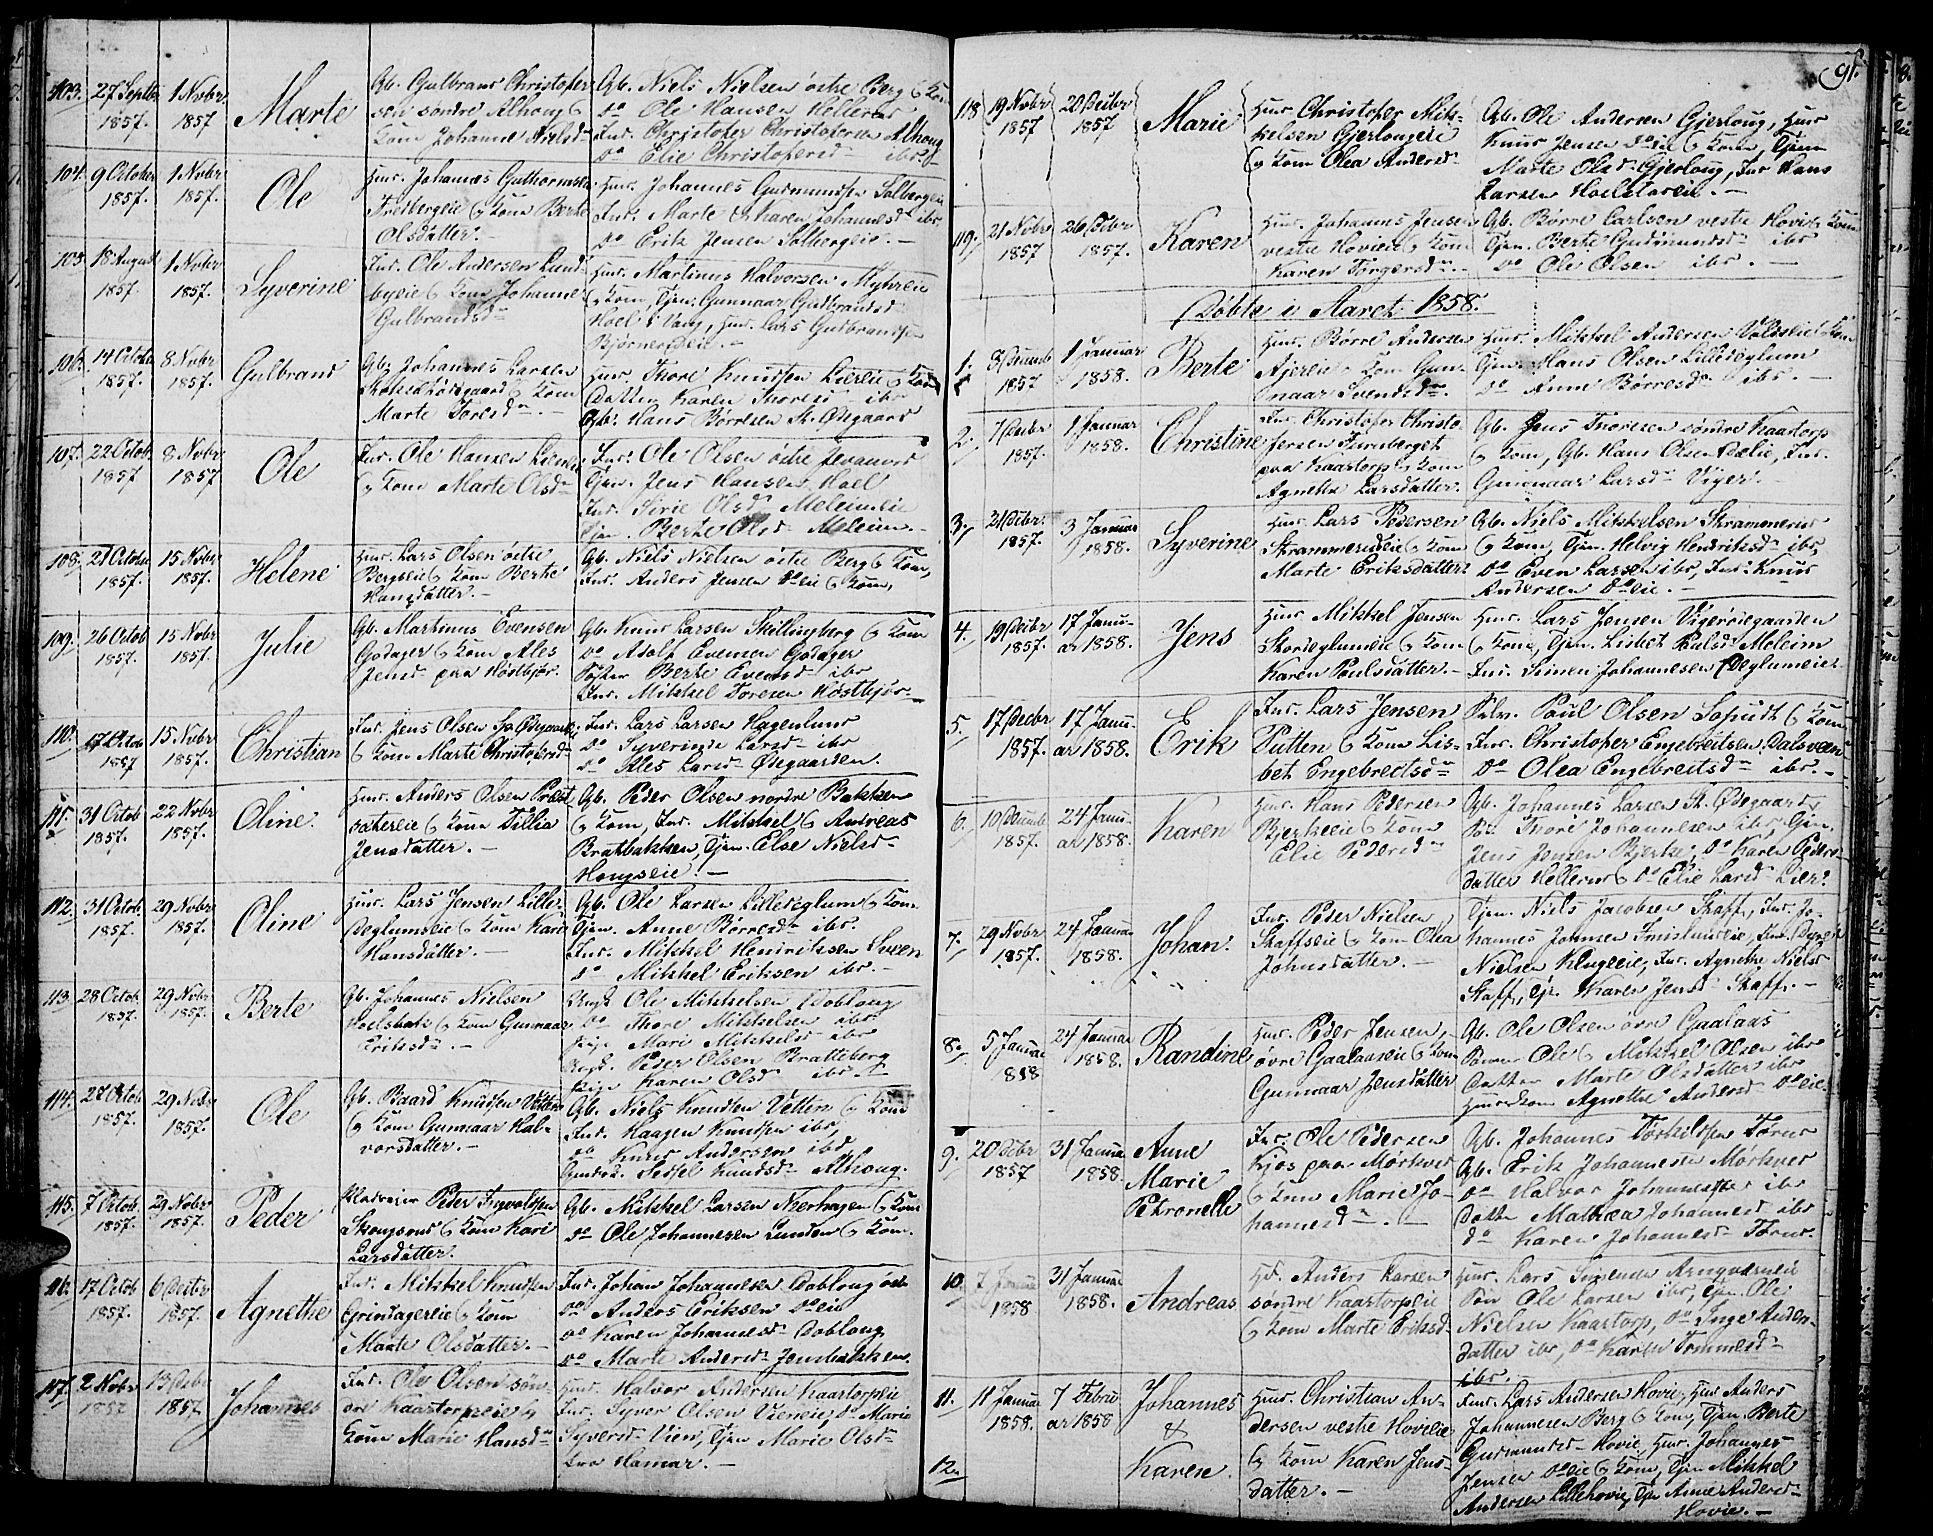 103. 27 Septbr 1857. 1 Novbr 1857 Marte
Gb. Gulbrand Christopher
sen søndre Alhoug &
Kone Johanne Nielsd
Gb. Niels Nielsen østre Berg & Kone
Do Ole Hansen Hellerud
Ind. Christopher Christophersen Alhoug
Do Elie Christophersd ibr
104. 9 October 1857. 1 Novbr 1857. Ole
Huusm. Johannes Guthormsen
Fredbergeie & Kone Berte
Olsdatter.
Huusm. Johannes Gudmundsen Solbergeie
Ind. Marte & Karen Johannesd ibr
Do Erik Jensen Solbergeie. —
105 18 August 1857. 1 Novbr 1857. Syverine
Ind. Ole Andersen Lund-
byeie & Kone Johanne
Gulbrandsd
Huusm. Martinus Halvorsen Myhreie
& Kone, Tjen. Gunnaar Gudbrandsd
Hoel i Vang, Huusm. Lars Gudbrandsen
Bjørnerudeie. —
106. 14 October 1857. 8 Novbr 1857. Gulbrand
Gb. Johannes Larsen
& Kone
Marte Toresd —
Huusm. Thore Knudsen Liereie & Kone
Datter Karen Thoresd ibr
Gb. Hans Børresen St. Ødegaard
107. 22 Octob 1857 8 Novbr 1857 Ole
Ind. Ole Hansen
& Kone Marte Olsd
Ind. Ole Olsen østre Jevanord
Tjen. Jens Hansen Hoel
Ind. Sirie Olsd Meleimeie
Tjen. Berte Olsd Meleim. —
108. 21 October 1857. 15 Novbr 1857. Helene
Huusm. Lars Olsen østre
Bergseie & Kone Berthe
Hansdatter. —
Gb. Niels Nielsen østre Berg & Kone,
Ind. Anders Jensen Do eie & Kone,
109. 26 Octob 1857. 15 Novbr 1857. Julie
Gb. Martinus Evensen
Godager & Kone Ales
Jensd paa Høstbjør.
Gb. Knud Larsen Skillingberg & Kone
Do Adolf Evensen Godager
Søster Berte Evensd ibr
Ind. Mikkel Toresen Høstbjør —
110. 17 Octob 1857 15 Novbr 1857. Christian
Ind. Jens Olsen Sp. Ødegaard
& Kone Marte Christophersd
Ind. Lars Larsen Hagenlund
Do Syverine Larsd ibr
Do Ales Larsd Ødegaarden.
111. 31 Octob 1857. 22 Novbr 1857. Oline.
Huusm. Anders Olsen Præst-
sætereie & Kone Tillia
Jensdatter. —
Gb. Peder Olsen nordre Bakken
& Kone, Ind. Mikkel & Andreas
Bratbakken, Tjen. Else Nielsd
Hougseie. —
112. 31 Octob. 1857. 29 Novbr 1857. Oline
Huusm. Lars Jensen Lille-
Deglumseie & Kone Kari
Hansdatter. —
Gb. Ole Larsen Lilledeglum & Kone
Tjen. Anne Børresd ibr.
Ind. Mikkel Hendriksen Sveen
Do Mikkel Eriksen ibr. —
113. 28 Octob. 1857. 29 Novbr 1857. Berte
Gb. Johannes Nielsen
Hoelsbak & Kone Gunnaar
Eriksd —
Ungk. Ole Mikkelsen Doblong
Do Thore Mikkelsen ibr
Pige Mari Mikkelsd ibr
Ungk. Peder Olsen Bratteberg
Pige Karen Olsd ibr —
114. 27 Octob 1857. 29 Novbr 1857. Ole
Gb. Baard Knudsen Vetten
& Kone Gunnaar Hal-
vorsdatter. —
Gb. Niels Knudsen Vetten & Kone
Ind. Haagen Knudsen ibr,
Do Knud Andersen ibr
Sidsel Knudsd Alhoug.
115. 7 Octob. 1857. 29 Novbr 1857. Peder
Peder Ingvaldsen
Skougsrud & Kone Kari
Larsdatter.
Gb. Mikkel Larsen Nærhagen & Kone
Do Ole Johannesen Lunden & Kone.
116. 17 Octob 1857. 6 Decbr 1857. Agnethe
Ind. Mikkel Knudsen
Grindagereie & Kone
Marte Olsdatter. —
Ind. Johan Johannesen Doblong østre
Do Anders Eriksen Do eie
Do Karen Johannesd Doblong
Do Marte Andersd Jensbakken.
117. 2 Novbr 1857 13 Decbr 1857. Johannes
Ind. Ole Olsen søn-
dre Kaastorpeie &
Kone Marie Hansd
Huusm. Halvor Andersen Kaastorpeie
Ind. Syver Olsen Vieneie, Do Marie
Syversd Vien, Tjen Marie Olsd
Hamar. —
91.
118 19 Novbr 1857 20 Decbr 1857 Marie
Huusm. Christopher Mik-
kelsen Gjerlougeie
& Kone Olea Andersd
Gb. Ole Andersen Gjerloug, Huusm
Knud Jensen Do eie & Kone, Tjen
Marte Olsd Gjerloug, Ind Hans
Larsen Hoelstadeie. —
119. 21 Novbr 1857 26 Decbr 1857. Karen
Huusm. Johannes Jensen
vestre Hovieie & Kone
Karen Torgersd —
Gb. Børre Carlsen vestre Hovie & Kone
Tjen. Berte Gudmundsd ibr
Do Ole Olsen ibr. —
Døbte i Aaret 1858.
1. 3 Decemb 1857 1 Januar 1858. Berte
Huusm. Børre Andersen
Ajereie & Kone Gun-
naar Svendsd
Huusm. Mikkel Andersen Voldseie & Kone
Tjen. Hans Olsen Lilledeglum
Do Anne Børresd ibr. —
2. 7 Decbr 1857. 1 Januar 1858. Christine
Ind. Christopher Christo-
phersen Furuberget
paa Kaastorp & Kone
Agnethe Larsdatter.
Gb. Jens Thoresen søndre Kaastorp
& Kone, Gb. Hans Olsen Bælie, Ind.
Gunnaar Larsd Viger. —
3. 21 Decbr. 1857. 3 Januar 1858. Syverine
Huusm. Lars Pedersen
Skrammerudeie & Kone
Marte Eriksdatter.
Gb. Niels Mikkelsen Skrammerud
& Kone, Tjen. Helvig Hendriksd ibr
Do Even Larsen ibr, Ind. Knud
Andersen Do eie. —
4. 19 Decbr 1857. 17 Janu- ar 1858. Jens
Huusm. Mikkel Jensen
Stordeglumeie & Kone
Karen Paulsdatter. —
Huusm. Lars Jensen Vigerøiegaarden
& Kone, Tjen. Lisbet Paulsd Meleim
Ind. Simen Johannesen Deglumeie.
5. 17 Decbr 1857. 17 Janu- ar 1858. Erik
Ind. Lars Jensen
Putten & Kone Lis-
bet Engebretsd
Selv. Paul Olsen Solvedt & Kone
Ind. Christopher Engebretsen Dalsveen
Do Olea Engebretsd ibr. —
6. 10 Decemb 1857. 24 Janu- ar 1858. Karen
Huusm. Hans Pedersen
Bjerkeeie & Kone
Elie Pedersd
Gb. Johannes Larsen St. Ødegaard,
Thore Johannesen ibr, Tjen.
Jens Jensen Bjerke, Do Karen Peders-
datter Hellerud, Do Elie Larsd Lier.
7. 29 Novbr 1857. 24 Januar 1858. Johan.
Ind. Peder Nielsen
Skaffseie & Kone Olea
Johnsdatter. —
Tjen. Niels Jacobsen Skaff, Ind. Jo-
hannes Johnsen Smislundeie, Ind.
Nielsen Klugeeie, Ind. Agnethe Nielsd
Skaff, Tje Karen Jensd Skaff. —
8. 5 Januar 1858 24 Januar 1858. Randine
Huusm. Peder Jensen,
øvre Gaalaaseie & Kone
Gunnaar Jensdatter
Gb. Ole Olsen øvre Gaalaas
Sønner Ole & Mikkel Olsen ibr
Datter Marte Olsdatter ibr
Agnethe Andersd Do eie.
9. 20 Decbr 1857 31 Januar 1858. Anne
Marie
Petronelle
Ind. Ole Pedersen
Kjos paa Mørkved
& Kone Marie Jo-
hannesd —
Gb. Johannes Torkilsen Torud
Gb. Erik Johannesen Mørkved
Do Halvor Johannesen ibr
Datter Mathea Johannesd ibr
Do Karen Johannesd Torud.
10. 7 Januar 1858 31 Januar 1858. Andreas
Anders Larsen
søndre Kaastorpeie
& Kone Marte Eriksd
Huusm. Lars Simensen Arnqværneie
Søn Ole Larsen ibr, Tjen. Ole
Nielsen Kaastorp, Do Inge Anders-
datter ibr, Do Karen Tommesd
ibr.
11. 11 Januar 1858. 7 Febru- ar 1858 Johannes
&
12. Karen.
Huusm. Christian An-
dersen vestre Hovieie
& Kone Karen Jens-
datter. —
Ind. Lars Andersen Hovie, Huusm Anders
Johannesen Berg & Kone, Tjen. Berte
Gudmundsd Hovie, Huusm. Johannes
Jensen Do eie & Kone, Tjen Mikkel
Andersen Lillehovie, Tjen Anne Andersd
Hovie. —